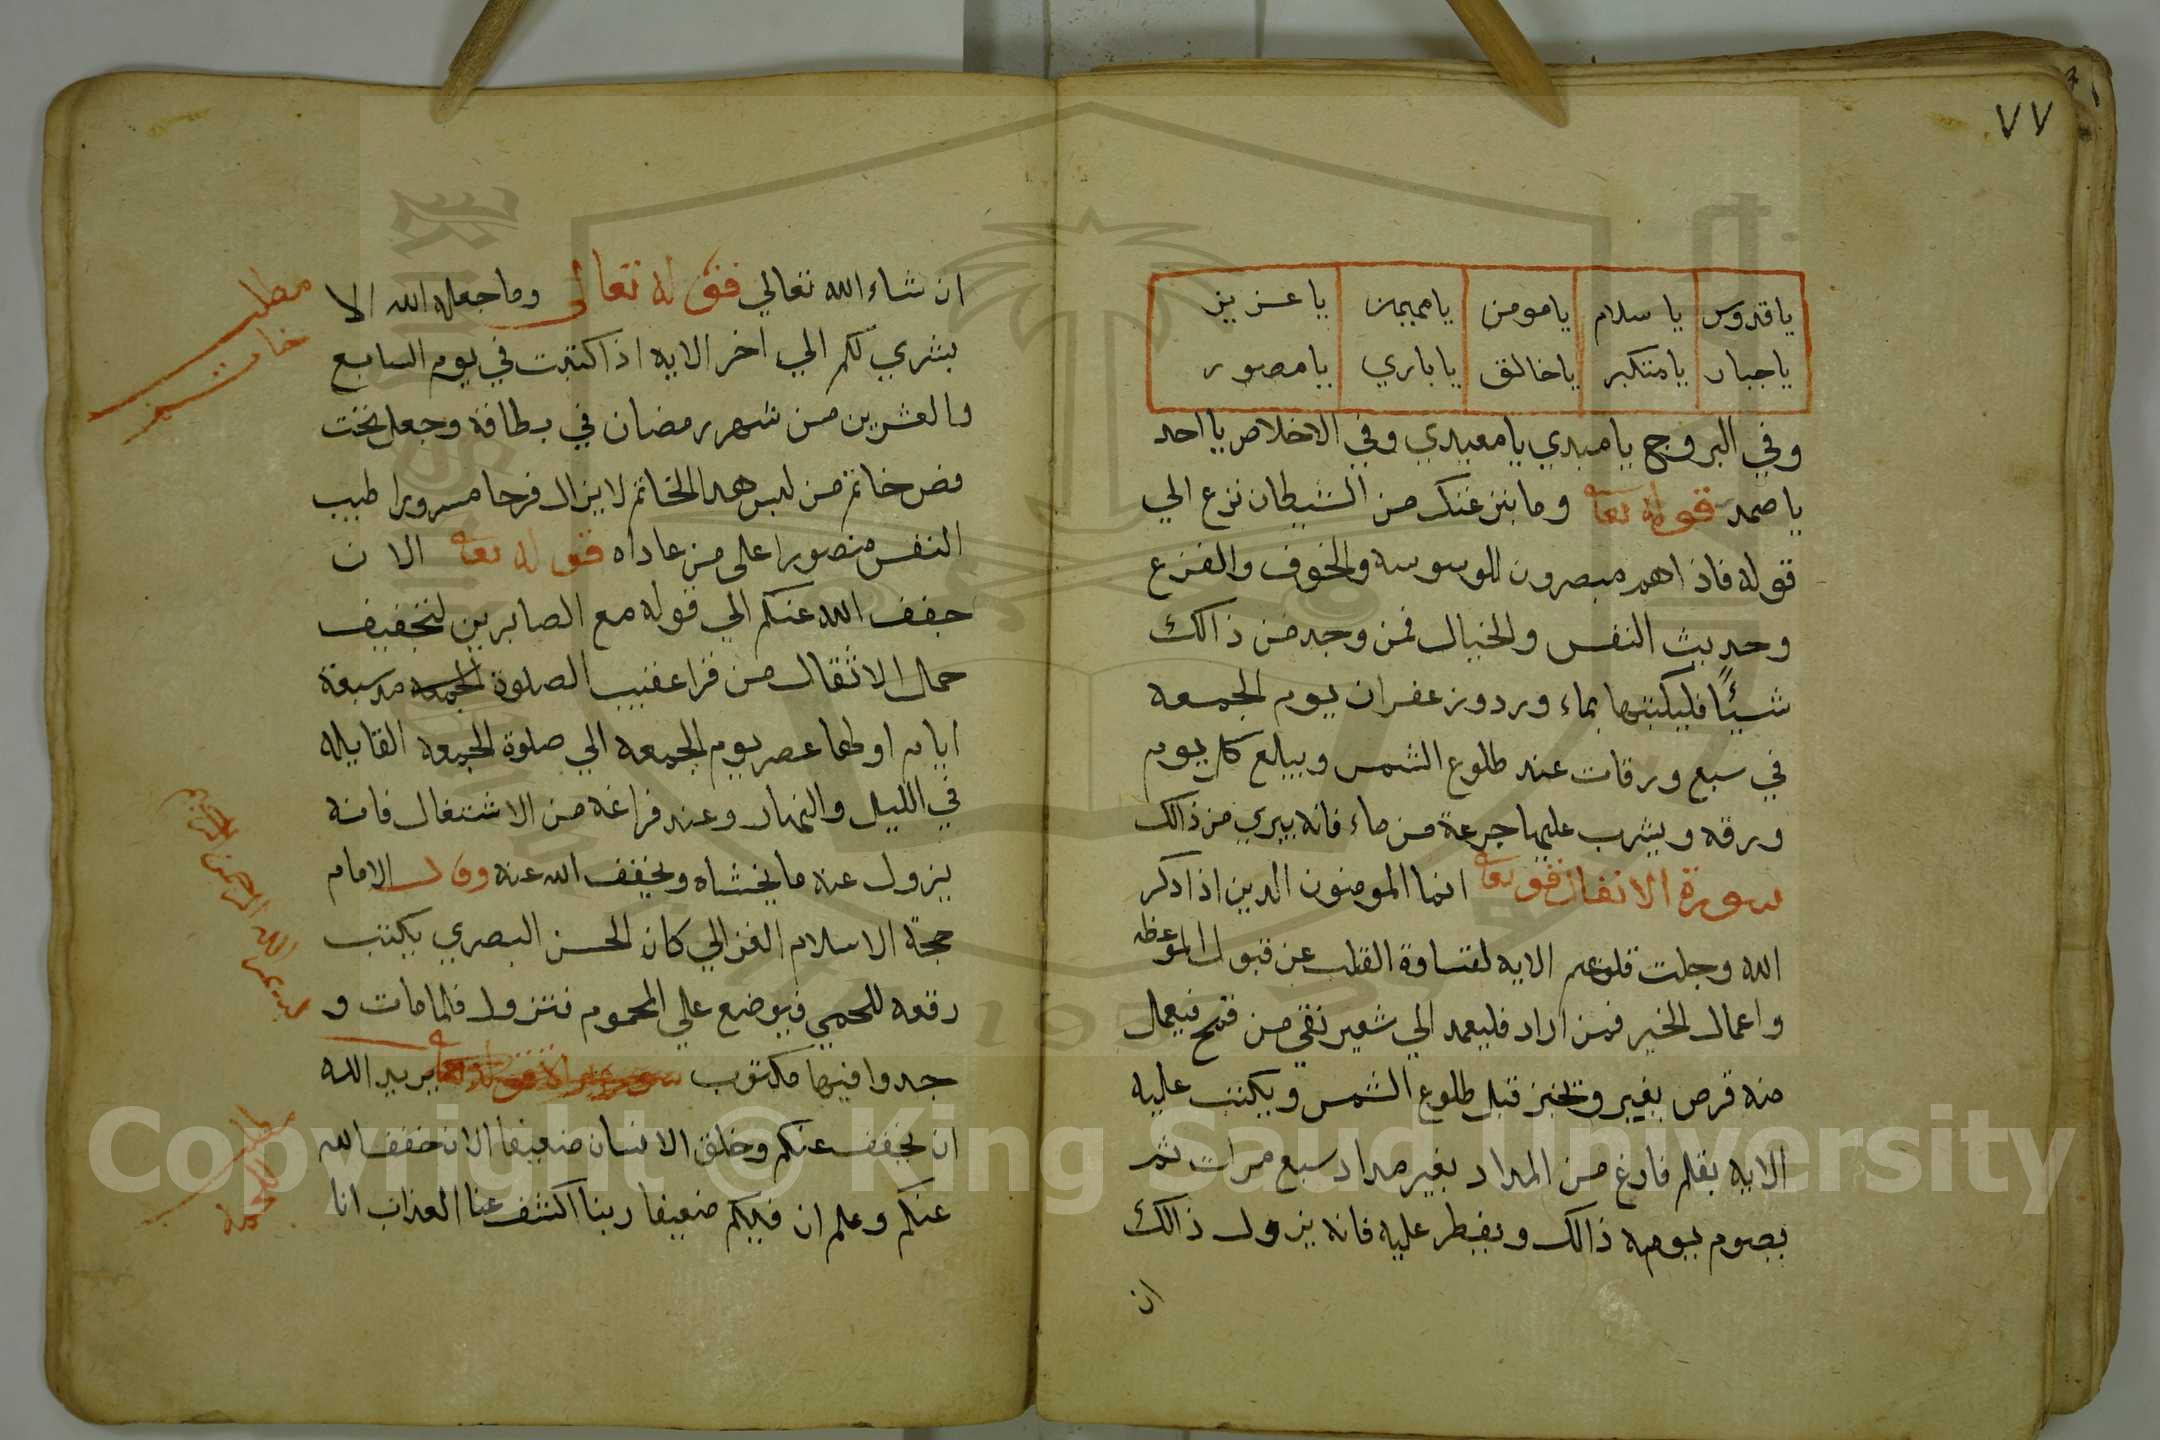 ٧٧
ياقدوس ياسلام يامومن يامهيمن ياعزيز
ياجبار يامتكبر ياخالق ياباري يامصور
وفي البروج يامبدي يامعيدي وفي الاخلاص يااحد
ياصمد قوله تعا وما ينزغنك من الشيطان نزع الي
قوله فاذاهم مبصرون للوسوسه والخوف والفزع
وحديث النفس والخيال فمن وجد من ذالك
شيئًا فليكتبها بماء ورد وزعفران يوم الجمعه
في سبع ورقات عند طلوع الشمس ويبلع كل يوم
ورقه ويشرب عليها جرعة من ماء فانه يبري من ذالك
سورة الانفال قو تعا انما المومنون الدين اذا دكر
الله وجلت قلوبهم الايه لقساوة القلب عن قبول الموعظه
واعمال الخير فمن اراد فليعمد الي شعير نقي من قمح فيعمل
منه قرص بغير وتخبز قبل طلوع الشمس ويكتب عليه
الايه بقلم فارغ من المداد بغير مداد سبع مرات ثم
يصوم يومه ذالك ويفطر عليه فانه يزول ذالك
ان
ان شاء الله تعالي قوله تعالى وما جعله الله الا
بشري لكم الي اخر الايه اذا كتبت في يوم السابع
والعشرين من شهر رمضان في بطاقة وجعل تحت
فص خاتم من لبس هدا الخاتم لايزال فرحا مسرورا طيب
النفس منصورا على من عاداه قوله تعا الان
خفف الله عنكم الي قوله مع الصابرين لتخفيف
حمل الاثقال من قرا عقيب الصلوة الجمعه مد سبعة
ايام اولها عصر يوم الجمعه الي صلوة الجمعه القايله
في الليل والنهار وعند فراغه من الاشتغال فانه
يزول عنه ما يخشاه ويخفف الله عنه وقال الامام
حجة الاسلام الغزالي كان الحسن البصري يكتب
رقعه للحمي فيوضع علي المحموم فتنزول فلما مات و
جدوا فيها مكتوب يريد الله
ان يخفف عنكم وخلق الانسان ضعيفا الان خفف الله
عنكم وعلم ان فيكم ضعيفا ربنا اكشف عنا العذاب انا
مطلب
بسم الله الرحمن الرحيم
Copyright © King Saud University